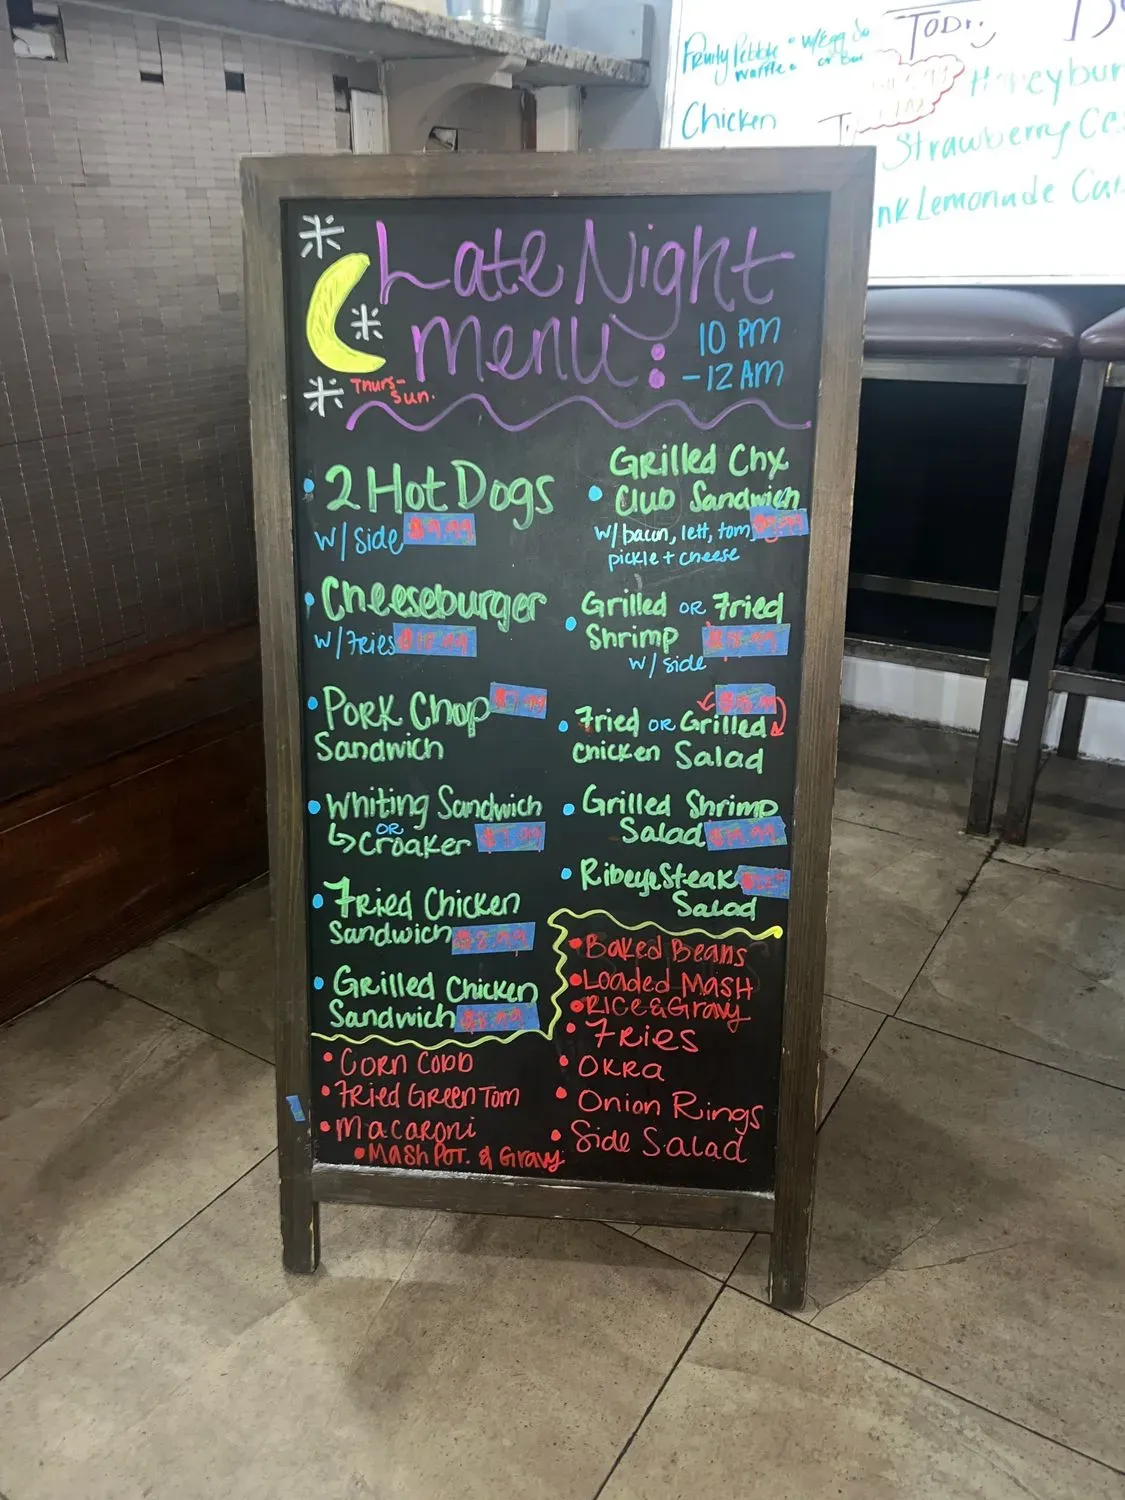 Late Night
Menu:
10 PM
-12 AM
Thurs-
Sun.
• 2 Hot Dogs
w/ side $9.99
• Cheeseburger
w/ Fries
• Pork Chop $7.99
Sandwich
• Whiting Sandwich
OR
↳ Croaker $7.99
• Fried Chicken
Sandwich $8.99
• Grilled Chicken
Sandwich $8.99
• Grilled Chx
Club Sandwich
w/ bacun, lett, tom, $9.99
pickle + cheese
• Grilled OR Fried
Shrimp
w/ side
• Fried OR Grilled
Chicken Salad
• Grilled Shrimp
Salad
• Ribeye Steak
Salad
• Corn Cobb
• Fried Green Tom
• Macaroni
• Mash Pot. & Gravy
• Baked Beans
• Loaded Mash
• Rice & Gravy
• Fries
• Okra
• Onion Rings
• Side Salad
Fruity Pebble • w/ Egg
Waffle •
Chicken
Honeybun
Strawberry
nk Lemonade